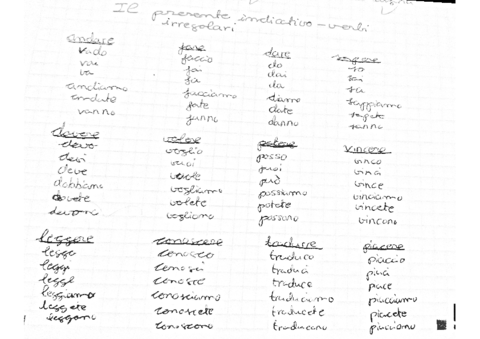 Il presente indicativo - verbi
irregolari
andare fare dare sapere
vado faccio do so
vai fai dai sai
va fa da sa
andiamo facciamo diamo sappiamo
andate fate date sapete
vanno fanno danno sanno
dovere volere potere vincere
devo voglio posso vinco
devi vuoi puoi vinci
deve vuole può vince
dobbiamo vogliamo possiamo vinciamo
dovete volete potete vincete
devono vogliono possono vincono
leggere conoscere tradurre piacere
leggo conosco traduco piaccio
leggi conosci traduci piaci
legge conosce traduce piace
leggiamo conosciamo traduciamo piacciamo
leggete conoscete traducete piacete
leggono conoscono traducono piacciono